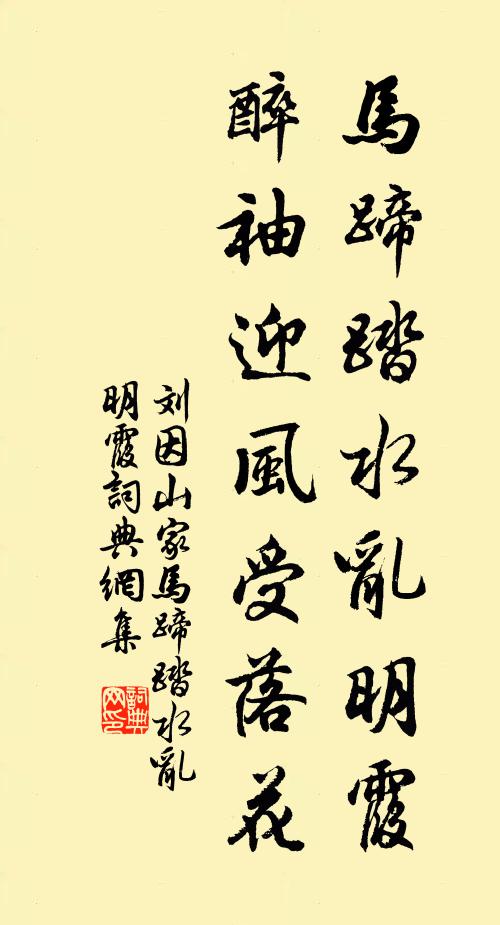 馬蹄踏水亂明霞
醉袖迎風受落花
刘因山家馬蹄踏水亂
明霞詞典網集
詞典
网印